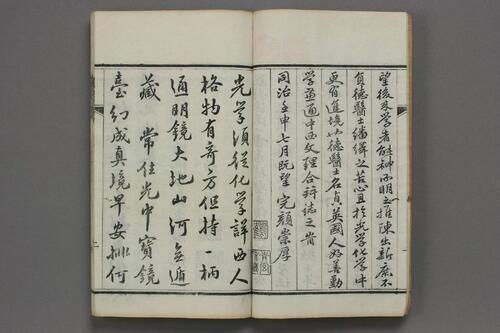 望後來學者能神而明之推陳出新庶不
負德醫士繙繹之苦心且於光學化學中
更有進境也德醫士名貞英國人好善勤
學並通中西文理合并誌之
同治壬申七月既望完顏崇厚
光學須從化學詳西人
格物有奇方但持一柄
通明鏡大地山河無遁
藏 常住光中寶鏡
臺幻成真境早安排何